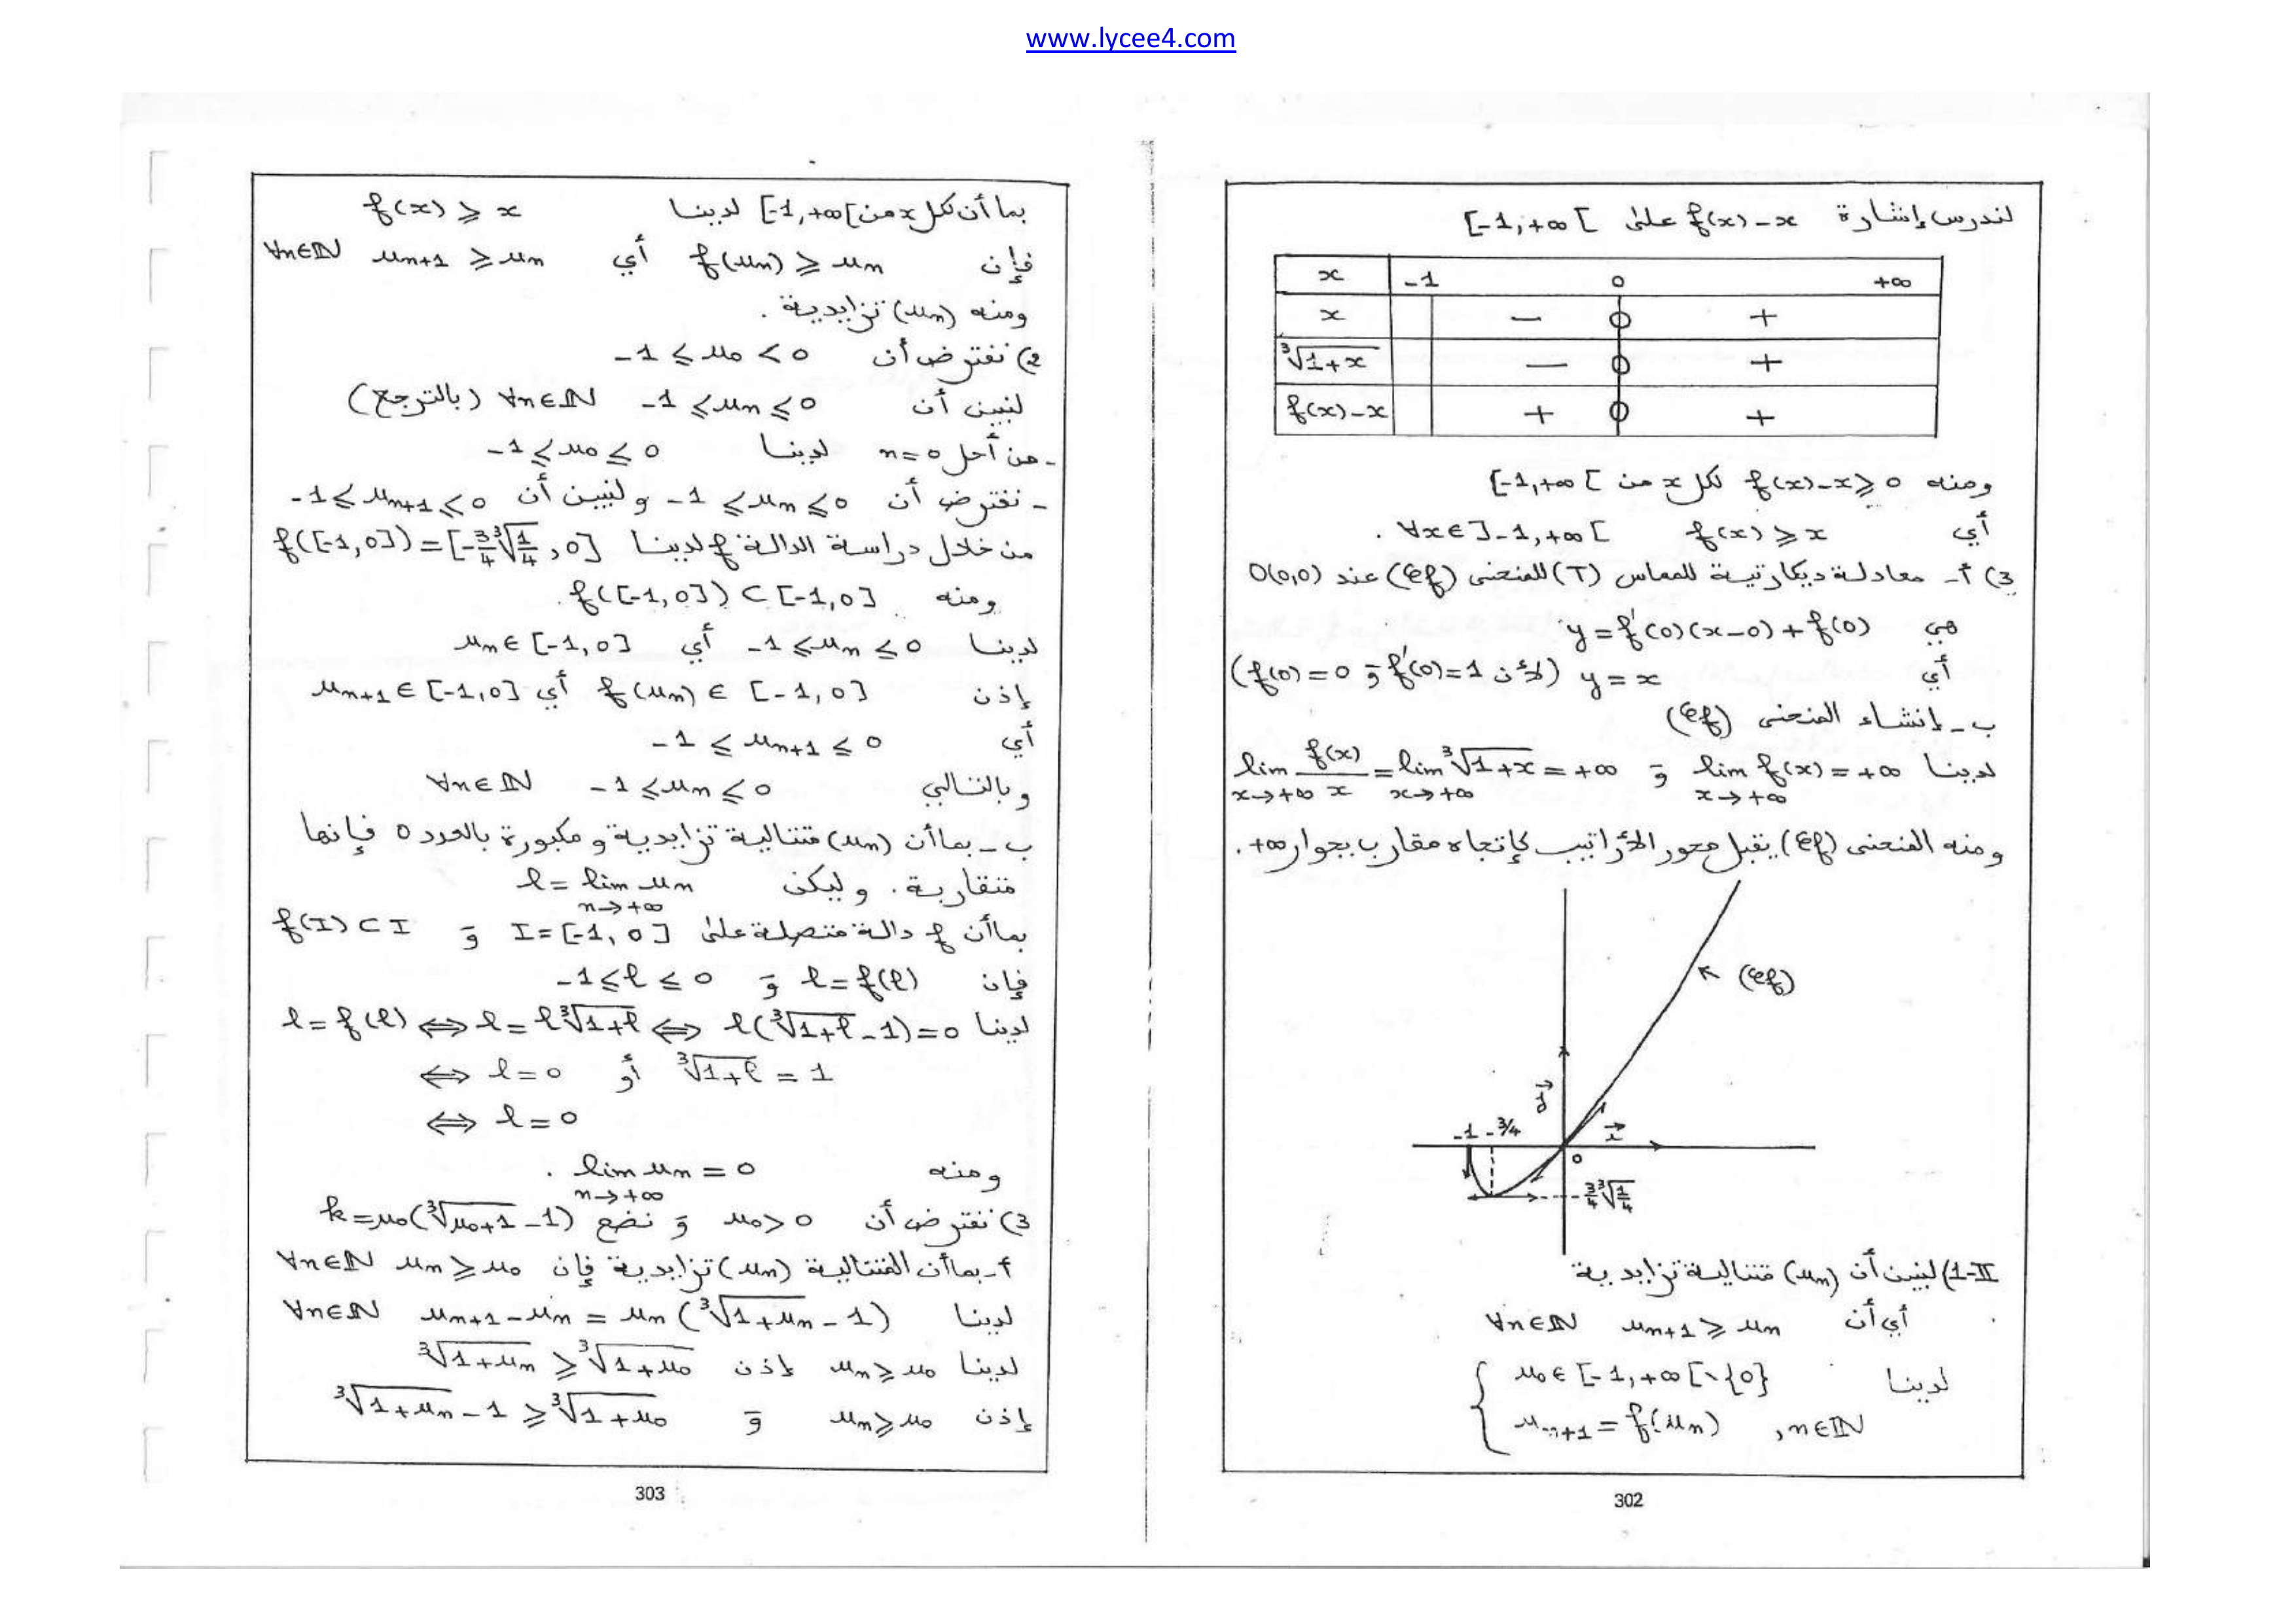 www.lycee4.com
لندرس إشارة f(x)-x على [-1,+∞[
x | -1 0 +∞
x | - 0 +
∛(1+x) | - 0 +
f(x)-x | + 0 +
ومنه f(x)-x⩾0 لكل x من [-1,+∞[
أي f(x)⩾x ∀x∈]-1,+∞[ .
3) أ- معادلة ديكارتية للمماس (T) للمنحنى (𝒞f) عند O(0,0)
هي y=f'(0)(x-0)+f(0)
أي y=x (لأن f'(0)=1 و f(0)=0)
ب- إنشاء المنحنى (𝒞f)
لدينا lim f(x)=+∞ و lim f(x)/x = lim ∛(1+x) = +∞
x→+∞ x→+∞ x→+∞
ومنه المنحنى (𝒞f) يقبل محور الأراتيب كإتجاه مقارب بجوار +∞.
(𝒞f)
-1 -3/4 0
-3/4 ∛(1/4)
II-1) لنبين أن (un) متتالية تزايدية
أي أن un+1⩾un ∀n∈ℕ
لدينا { u0∈[-1,+∞[∖{0}
un+1=f(un) , n∈ℕ
302
بما أن لكل x من [-1,+∞[ لدينا f(x)⩾x
فإن f(un)⩾un أي un+1⩾un ∀n∈ℕ
ومنه (un) تزايدية .
2) نفترض أن -1⩽u0<0
لنبين أن -1⩽un⩽0 ∀n∈ℕ (بالترجع)
- من أجل n=0 لدينا -1⩽u0⩽0
- نفترض أن -1⩽un⩽0 ولنبين أن -1⩽un+1⩽0
من خلال دراسة الدالة f لدينا f([-1,0])=[-3/4 ∛(1/4),0]
ومنه f([-1,0])⊂[-1,0] .
لدينا -1⩽un⩽0 أي un∈[-1,0]
إذن f(un)∈[-1,0] أي un+1∈[-1,0]
أي -1⩽un+1⩽0
وبالتالي -1⩽un⩽0 ∀n∈ℕ
ب- بما أن (un) متتالية تزايدية ومكبورة بالعدد 0 فإنها
متقاربة. وليكن ℓ=lim un
n→+∞
بما أن f دالة متصلة على I=[-1,0] و f(I)⊂I
فإن ℓ=f(ℓ) و -1⩽ℓ⩽0
لدينا ℓ=f(ℓ)⟺ℓ=ℓ∛(1+ℓ)⟺ℓ(∛(1+ℓ)-1)=0
⟺ ℓ=0 أو ∛(1+ℓ)=1
⟺ ℓ=0
ومنه lim un=0 .
n→+∞
3) نفترض أن u0>0 و نضع k=u0(∛(u0+1)-1)
أ- بما أن المتتالية (un) تزايدية فإن un⩾u0 ∀n∈ℕ
لدينا un+1-un=un(∛(1+un)-1) ∀n∈ℕ
لدينا un⩾u0 إذن ∛(1+un)⩾∛(1+u0)
إذن un⩾u0 و ∛(1+un)-1⩾∛(1+u0)
303